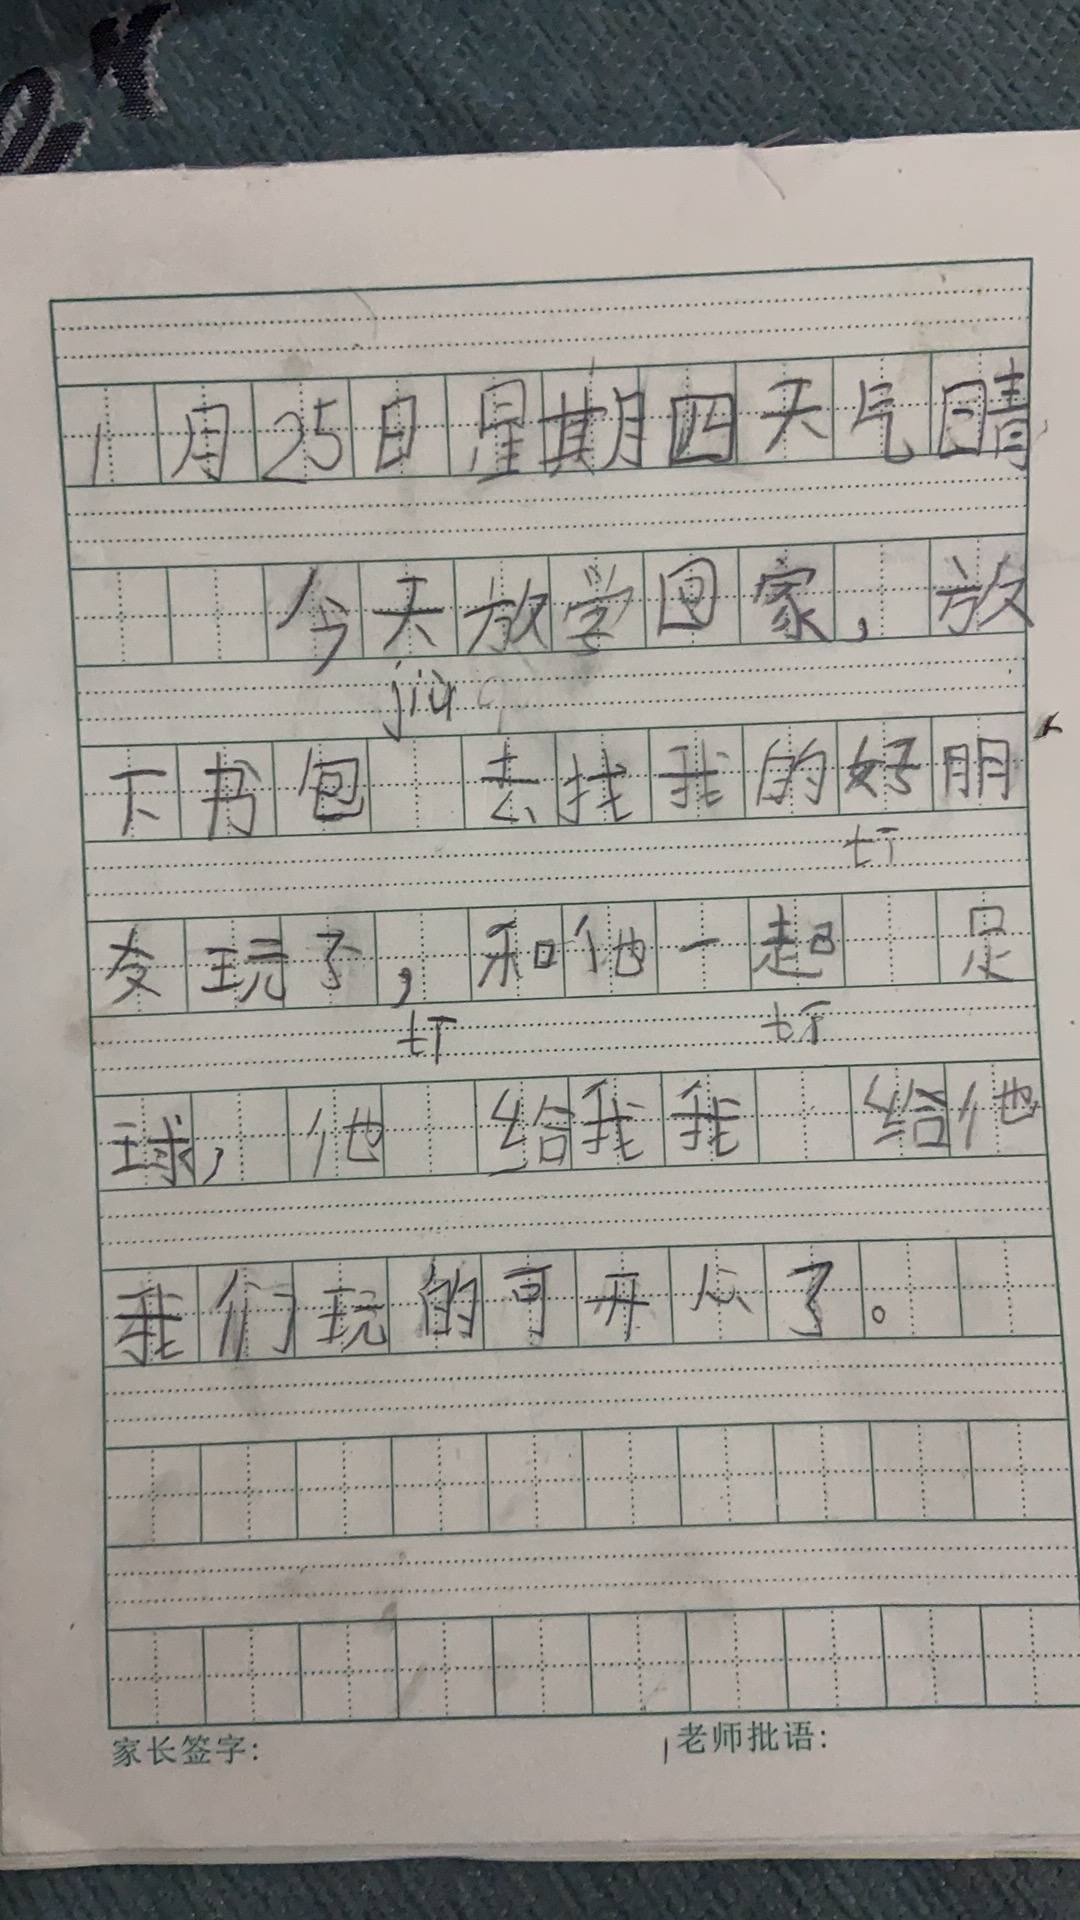 1月25日星期四天气晴
今天放学回家，放
jiù
下书包 去找我的好朋
tī
友玩了，和他一起 足
tī tī
球，他 给我我 给他
我们玩的可开心了。
家长签字: 老师批语: